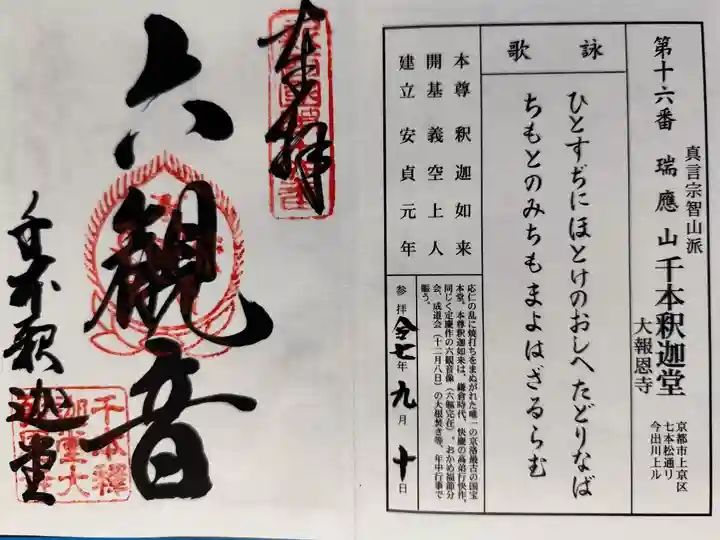 第十六番 瑞應山 千本釈迦堂
真言宗智山派
大報恩寺
京都市上京区
七本松通り
今出川上ル
詠歌
ひとすぢにほとけのおしへたどりなば
ちもとのみちもまよはざるらむ
本尊 釈迦如来
開基 義空上人
建立 安貞元年
応仁の乱に焼打ちをまぬがれた唯一の京洛最古の国宝
本堂。本尊釈迦如来は、鎌倉時代、快慶の高弟行快作、
同じく定慶作の六観音像（六軀完在）。おかめ福節分
会、成道会（十二月八日）の大根焚き等、年中行事で
賑う。
参拝 令七年九月十日
奉拝
六観音
千本釈迦堂
千本釋
迦堂大